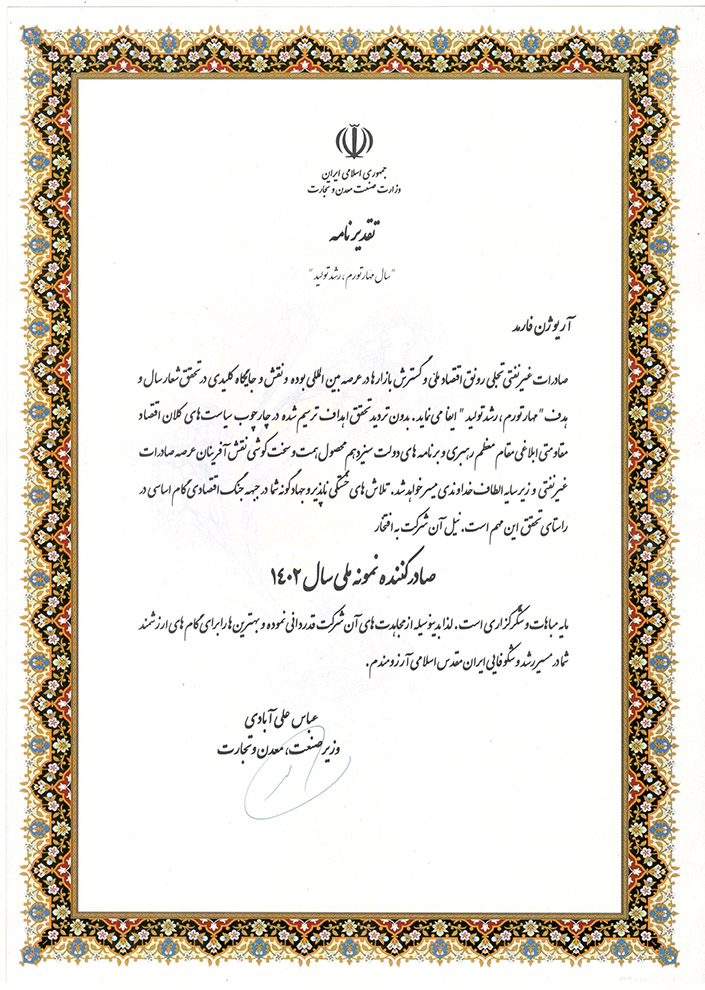 جمهوری اسلامی ایران
وزارت صنعت معدن و تجارت
تقدیرنامه
"سال مهار تورم، رشد تولید"
آریوژن فارمد
صادرات غیرنفتی تجلی رونق اقتصاد ملی و گسترش بازارها در عرصه بین المللی بوده و نقش و جایگاه کلیدی در تحقق شعار سال و
هدف "مهار تورم، رشد تولید" ایفا می نماید. بدون تردید تحقق اهداف ترسیم شده در چارچوب سیاست های کلان اقتصاد
مقاومتی ابلاغی مقام معظم رهبری و برنامه های دولت سیزدهم محصول همت و سخت کوشی نقش آفرینان عرصه صادرات
غیرنفتی و زیر سایه الطاف خداوندی میسر خواهد شد. تلاش های خستگی ناپذیر و جهادگونه شما در جبهه جنگ اقتصادی گام اساسی در
راستای تحقق این مهم است. نیل آن شرکت به افتخار
صادرکننده نمونه ملی سال ۱۴۰۲
مایه مباهات و شکرگزاری است. لذا بدینوسیله از مجاهدت های آن شرکت قدردانی نموده و بهترین ها را برای گام های ارزشمند
شما در مسیر رشد و شکوفایی ایران مقدس اسلامی آرزومندم.
عباس علی آبادی
وزیر صنعت، معدن و تجارت